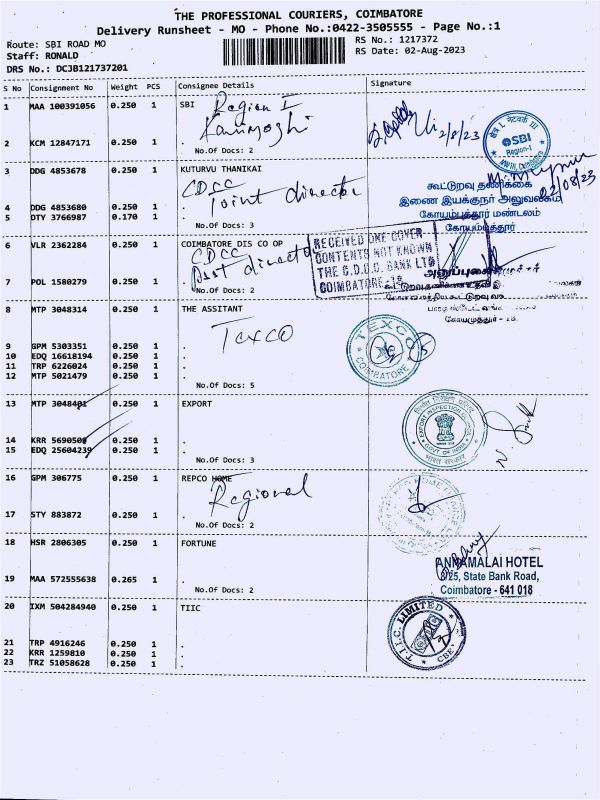 THE PROFESSIONAL COURIERS, COIMBATORE
Delivery Runsheet - MO - Phone No.:0422-3505555 - Page No.:1
Route: SBI ROAD MO
RS No.: 1217372
Staff: RONALD
RS Date: 02-Aug-2023
DRS No.: DCJB121737201
S No Consignment No Weight PCS Consignee Details Signature
1 MAA 100391056 0.250 1 SBI Region I
2 KCM 12847171 0.250 1 .
No.Of Docs: 2
2/8/23
SBI
Region-I
3 DDG 4853678 0.250 1 KUTURVU THANIKAI
CDCC
Joint director
4 DDG 4853680 0.250 1 .
5 DTY 3766987 0.170 1 .
No.Of Docs: 3
02/08/23
கூட்டுறவு தணிக்கை
இணை இயக்குநர் அலுவலகம்
கோயம்புத்தூர் மண்டலம்
கோயம்புத்தூர்
6 VLR 2362284 0.250 1 COIMBATORE DIS CO OP
CDCC
Asst director
7 POL 1580279 0.250 1 .
No.Of Docs: 2
RECEIVED ONE COVER
CONTENTS NOT KNOWN
THE C.D.C.C. BANK LTD
COIMBATORE-18
8 MTP 3048314 0.250 1 THE ASSITANT
Texco
9 GPM 5303351 0.250 1 .
10 EDQ 16618194 0.250 1 .
11 TRP 6226024 0.250 1 .
12 MTP 5021479 0.250 1 .
No.Of Docs: 5
TEXCO
COIMBATORE
13 MTP 3048401 0.250 1 EXPORT
14 KRR 5690502 0.250 1 .
15 EDQ 25604239 0.250 1 .
No.Of Docs: 3
EXPORT INSPECTION
GOVT OF INDIA
भारत सरकार
16 GPM 306775 0.250 1 REPCO HOME
Regional
17 STY 883872 0.250 1 .
No.Of Docs: 2
18 HSR 2806305 0.250 1 FORTUNE
19 MAA 572555638 0.265 1 .
No.Of Docs: 2
ANNAMALAI HOTEL
8/25, State Bank Road,
Coimbatore - 641 018
20 IXM 504284940 0.250 1 TIIC
21 TRP 4916246 0.250 1 .
22 KRR 1259810 0.250 1 .
23 TRZ 51058628 0.250 1 .
T.I.I.C. LIMITED
CBE